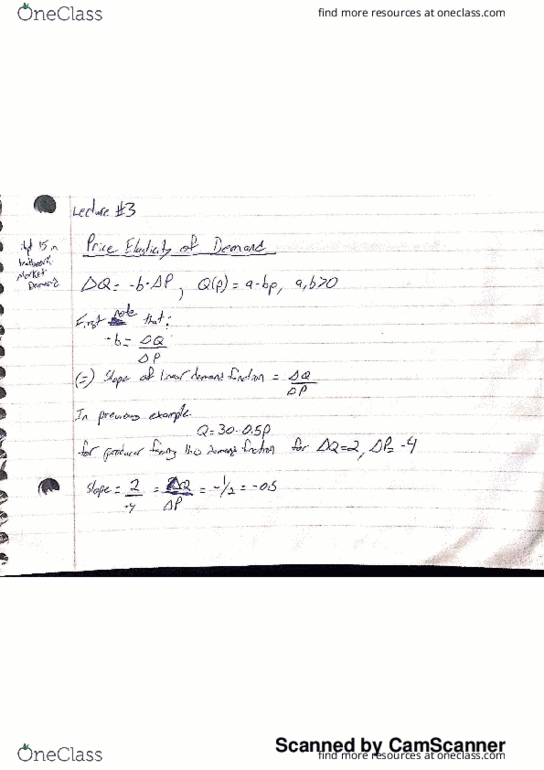 OneClass
find more resources at oneclass.com
Lecture #3
15 in
Market
Demand
Price Elasticity of Demand
ΔQ = -b·ΔP, Q(p) = a-bp, a,b>0
First note that:
-b = ΔQ
ΔP
(=) Slope of linear demand function = ΔQ
ΔP
In previous example
Q = 30-0.5p
for producer facing this demand function for ΔQ=2, ΔP= -4
slope = 2 = ΔQ = -1/2 = -0.5
-4 ΔP
Scanned by CamScanner
OneClass
find more resources at oneclass.com